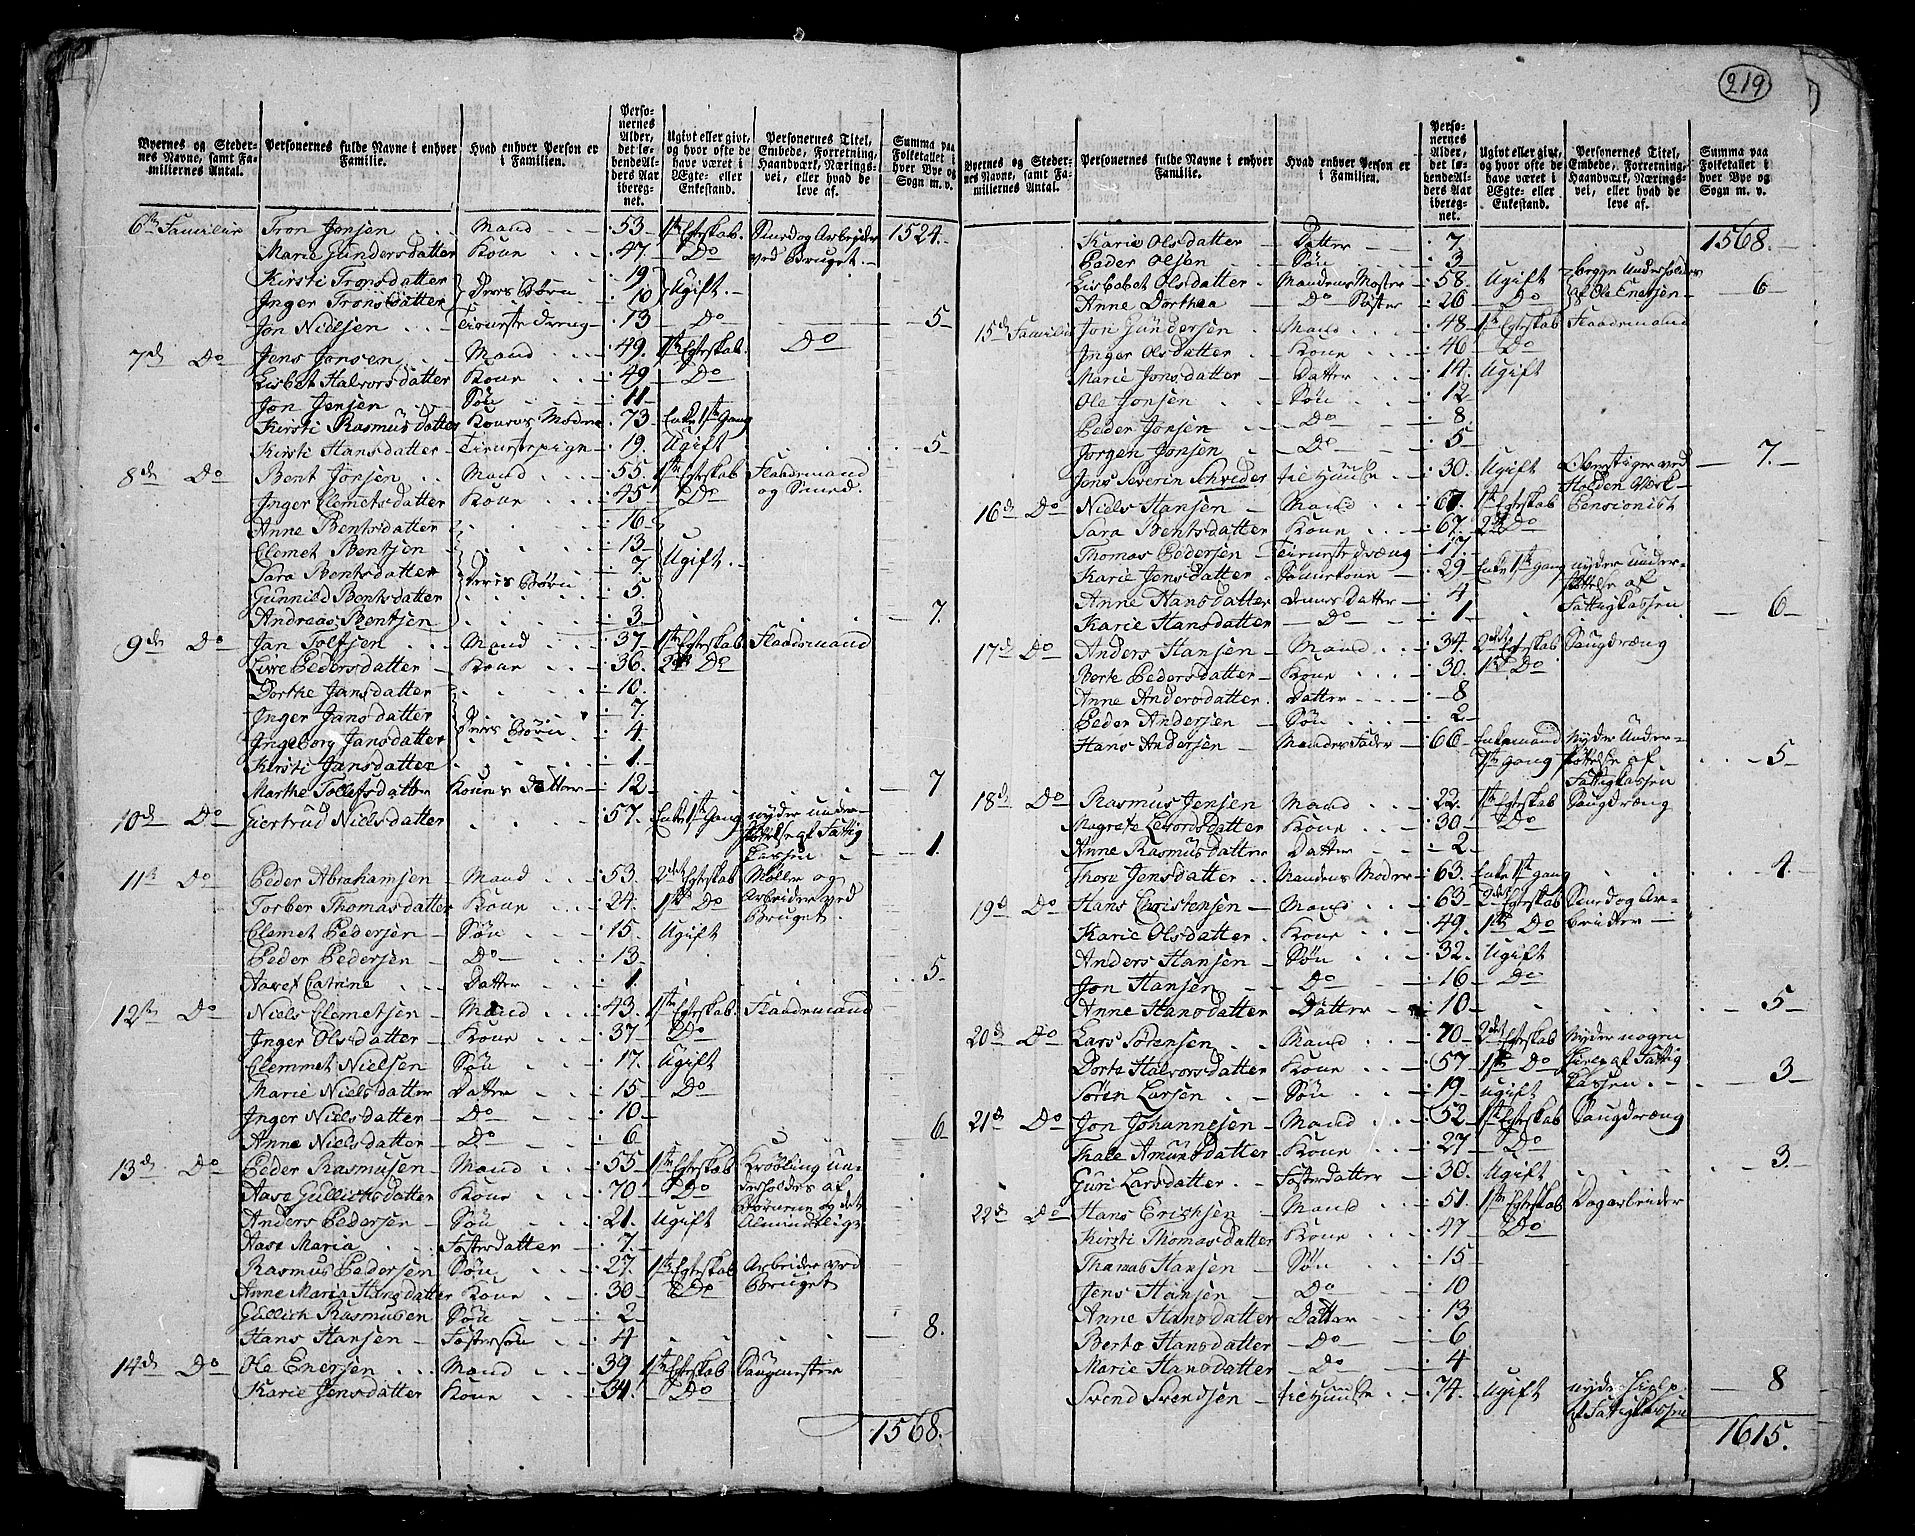 219
Byernes og Stedernes Navne, samt Familiernes Antal.
Personernes fulde Navne i enhver Familie.
Hvad enhver Person er i Familien.
Personernes Alder, det løbende Alders Aar iberegnet.
Ugivt eller givt, og hvor ofte de have været i Ægte- eller Enkestand.
Personernes Titel, Embede, Forretning, Haandværk, Næringsvei, eller hvad de leve af.
Summa paa Folketallet i hver Bye og Sogn m. v.
6te Familie Tron Jonsen Mand 53 1ste Egteskab Smed og Arbeider 1524.
Marie Gundersdatter Kone 47 Do ved Bruget
Kirsti Tronsdatter 19
Inger Tronsdatter Deres Børn 10 Ugift
Jon Nielsen Tienneste dreng 13 Do 5
7de Do Jens Jonsen Mand 49 1ste Egteskab Do
Lisbet Halvorsdatter Kone 49 Do
Jon Jensen Søn 11
Kirsti Rasmusdatter Konens Moder 73 Enke 1ste Gang
Kirsti Hansdatter Tienestepige 19 Ugift 5
8de Do Bent Jonsen Mand 55 1ste Egteskab Flaademand
Inger Clemetsdatter Kone 45 Do og Smed
Anne Bentsdatter 16
Clemet Bentsen 13
Sara Bentsdatter Deres Børn 7 Ugift
Gunnild Bentsdatter 5
Andreas Bentsen 3 7.
9de Do Jan Tolfsen Mand 37 1ste Egteskab Flaademand
Live Pedersdatter Kone 36 2det Do
Dorthe Jansdatter 10
Inger Jansdatter 7
Ingeborg Jansdatter Deres Børn 4
Kirsti Jansdatter 1
Marthe Tollefsdatter Konens Datter 12 7
10de Do Giertrud Nielsdatter 57 Enke 1ste Gang nyder under-
af Fattig
Cassen 1.
11te Do Peder Abrahamsen Mand 53 2det Egteskab Møller og
Torber Thomasdatter Kone 24 1ste Do Arbeider ved
Clemet Pedersen Søn 15 Ugift Bruget
Peder Pedersen Do 13
Aaset Catrine Datter 1 5
12te Do Niels Clemetsen Mand 43 1ste Egteskab Flaademand
Inger Olsdatter Kone 37 Do
Clemmet Nielsen Søn 17 Ugift
Marie Nielsdatter Datter 15 Do
Inger Nielsdatter Do 10
Anne Nielsdatter Do 6 6
13de Do Peder Rasmusen Mand 55 1ste Egteskab Krøbling un-
Aase Gullichsdatter Kone 70 Do derholdes af
Anders Pedersen Søn 21 Ugift Børnene og det
Aase Maria Fosterdatter 7 Almindelige
Rasmus Pedersen Søn 27 1ste Egteskab Arbeider ved
Anne Maria Hansdatter Kone 30 Do Bruget
Gullich Rasmusen Søn 2
Hans Hansen Fostersøn 4 8.
14de Do Ole Enersen Mand 39 1ste Egteskab Saugmester
Karie Jensdatter Kone 34 Do
1568.
Byernes og Stedernes Navne, samt Familiernes Antal.
Personernes fulde Navne i enhver Familie.
Hvad enhver Person er i Familien.
Personernes Alder, det løbende Alders Aar iberegnet.
Ugivt eller givt, og hvor ofte de have været i Ægte- eller Enkestand.
Personernes Titel, Embede, Forretning, Haandværk, Næringsvei, eller hvad de leve af.
Summa paa Folketallet i hver Bye og Sogn m. v.
Karie Olsdatter Datter 7 1568.
Peder Olsen Søn 3
Lisbabet Olsdatter Mandens Moster 58 Ugift begge underholdes
Anne Dorthea Do Søster 26 Do af Ole Enersen 6
15de Familie Jon Gundersen Mand 48 1ste Egteskab Flaademand
Inger Olsdatter Kone 46 Do
Marie Jonsdatter Datter 14 Ugift
Ole Jonsen Søn 12
Peder Jonsen Do 8
Jorgen Jonsen Do 5
Jens Severin Schrøder til Huuse 30 Ugift ved Holden Værk 7.
16de Do Niels Hansen Mand 67 1ste Egteskab Pensionist
Sara Bentsdatter Kone 67 2det Do
Thomas Pedersen Tieneste dræng 17
Karie Jensdatter Sønnekone 29 Enke 1ste Gang nyder under-
Anne Hansdatter Dennes Datter 4 støttelse af
Karie Hansdatter Do 1 Fattigkassen 6
17de Do Anders Hansen Mand 34 2det Egteskab Saugdræng
Berte Pedersdatter Kone 30 1ste Do
Anne Andersdatter Datter 8
Peder Andersen Søn 2
Hans Andersen Mandens Fader 66 Enkemand Nyder Under-
1ste Gang støttelse af 5
Fattigkassen
18de Do Rasmus Jensen Mand 22 1ste Egteskab Saugdræng
Magrete Levordsdatter Kone 30 Do
Anne Rasmusdatter Datter 2
Thore Jensdatter Mandens Moder 63 Enke 1ste gang 4
19de Do Hans Christensen Mand 63 2det Egteskab Smed og Ar-
Karie Olsdatter Kone 49 1ste Do beider
Anders Hansen Søn 32 Ugift
Jon Hansen Do 16 Do
Anne Hansdatter Datter 10 5
20de Do Lars Sørensen Mand 70 2det Egteskab Nyder nogen
Dorte Halvorsdatter Kone 57 1ste Do Hielp af Fattig
Søren Larsen Søn 19 ugift Cassen 3
21de Do Jon Johannesen Mand 52 1ste Egteskab Saugdræng
Kale Amundsdatter Kone 27 Do
Guri Larsdatter Fosterdatter 30 Ugift 3
22de Do Hans Erichsen Mand 51 1ste Egteskab Dagarbeider
Kirsti Thomasdatter Kone 47 Do
Thomas Hansen Søn 15
Jens Hansen Do 10
Anne Hansdatter Datter 13
Berto Hansdatter Do 6
Marie Hansdatter Do 4
Svend Svendsen til Huuse 74 Ugift nyder Hielp 8
af Fattigkassen
1615.